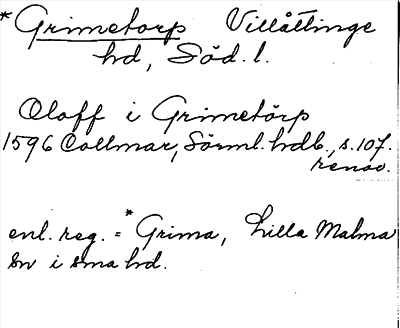 *Grimetorp Villåttinge
hd, Söd. l.
Oloff i Grimetörp
1596 Collmar, Sörml. hdl 6, s. 107.
renov.
enl. reg. = *Grima, Lilla Malma
sn i sma hd.